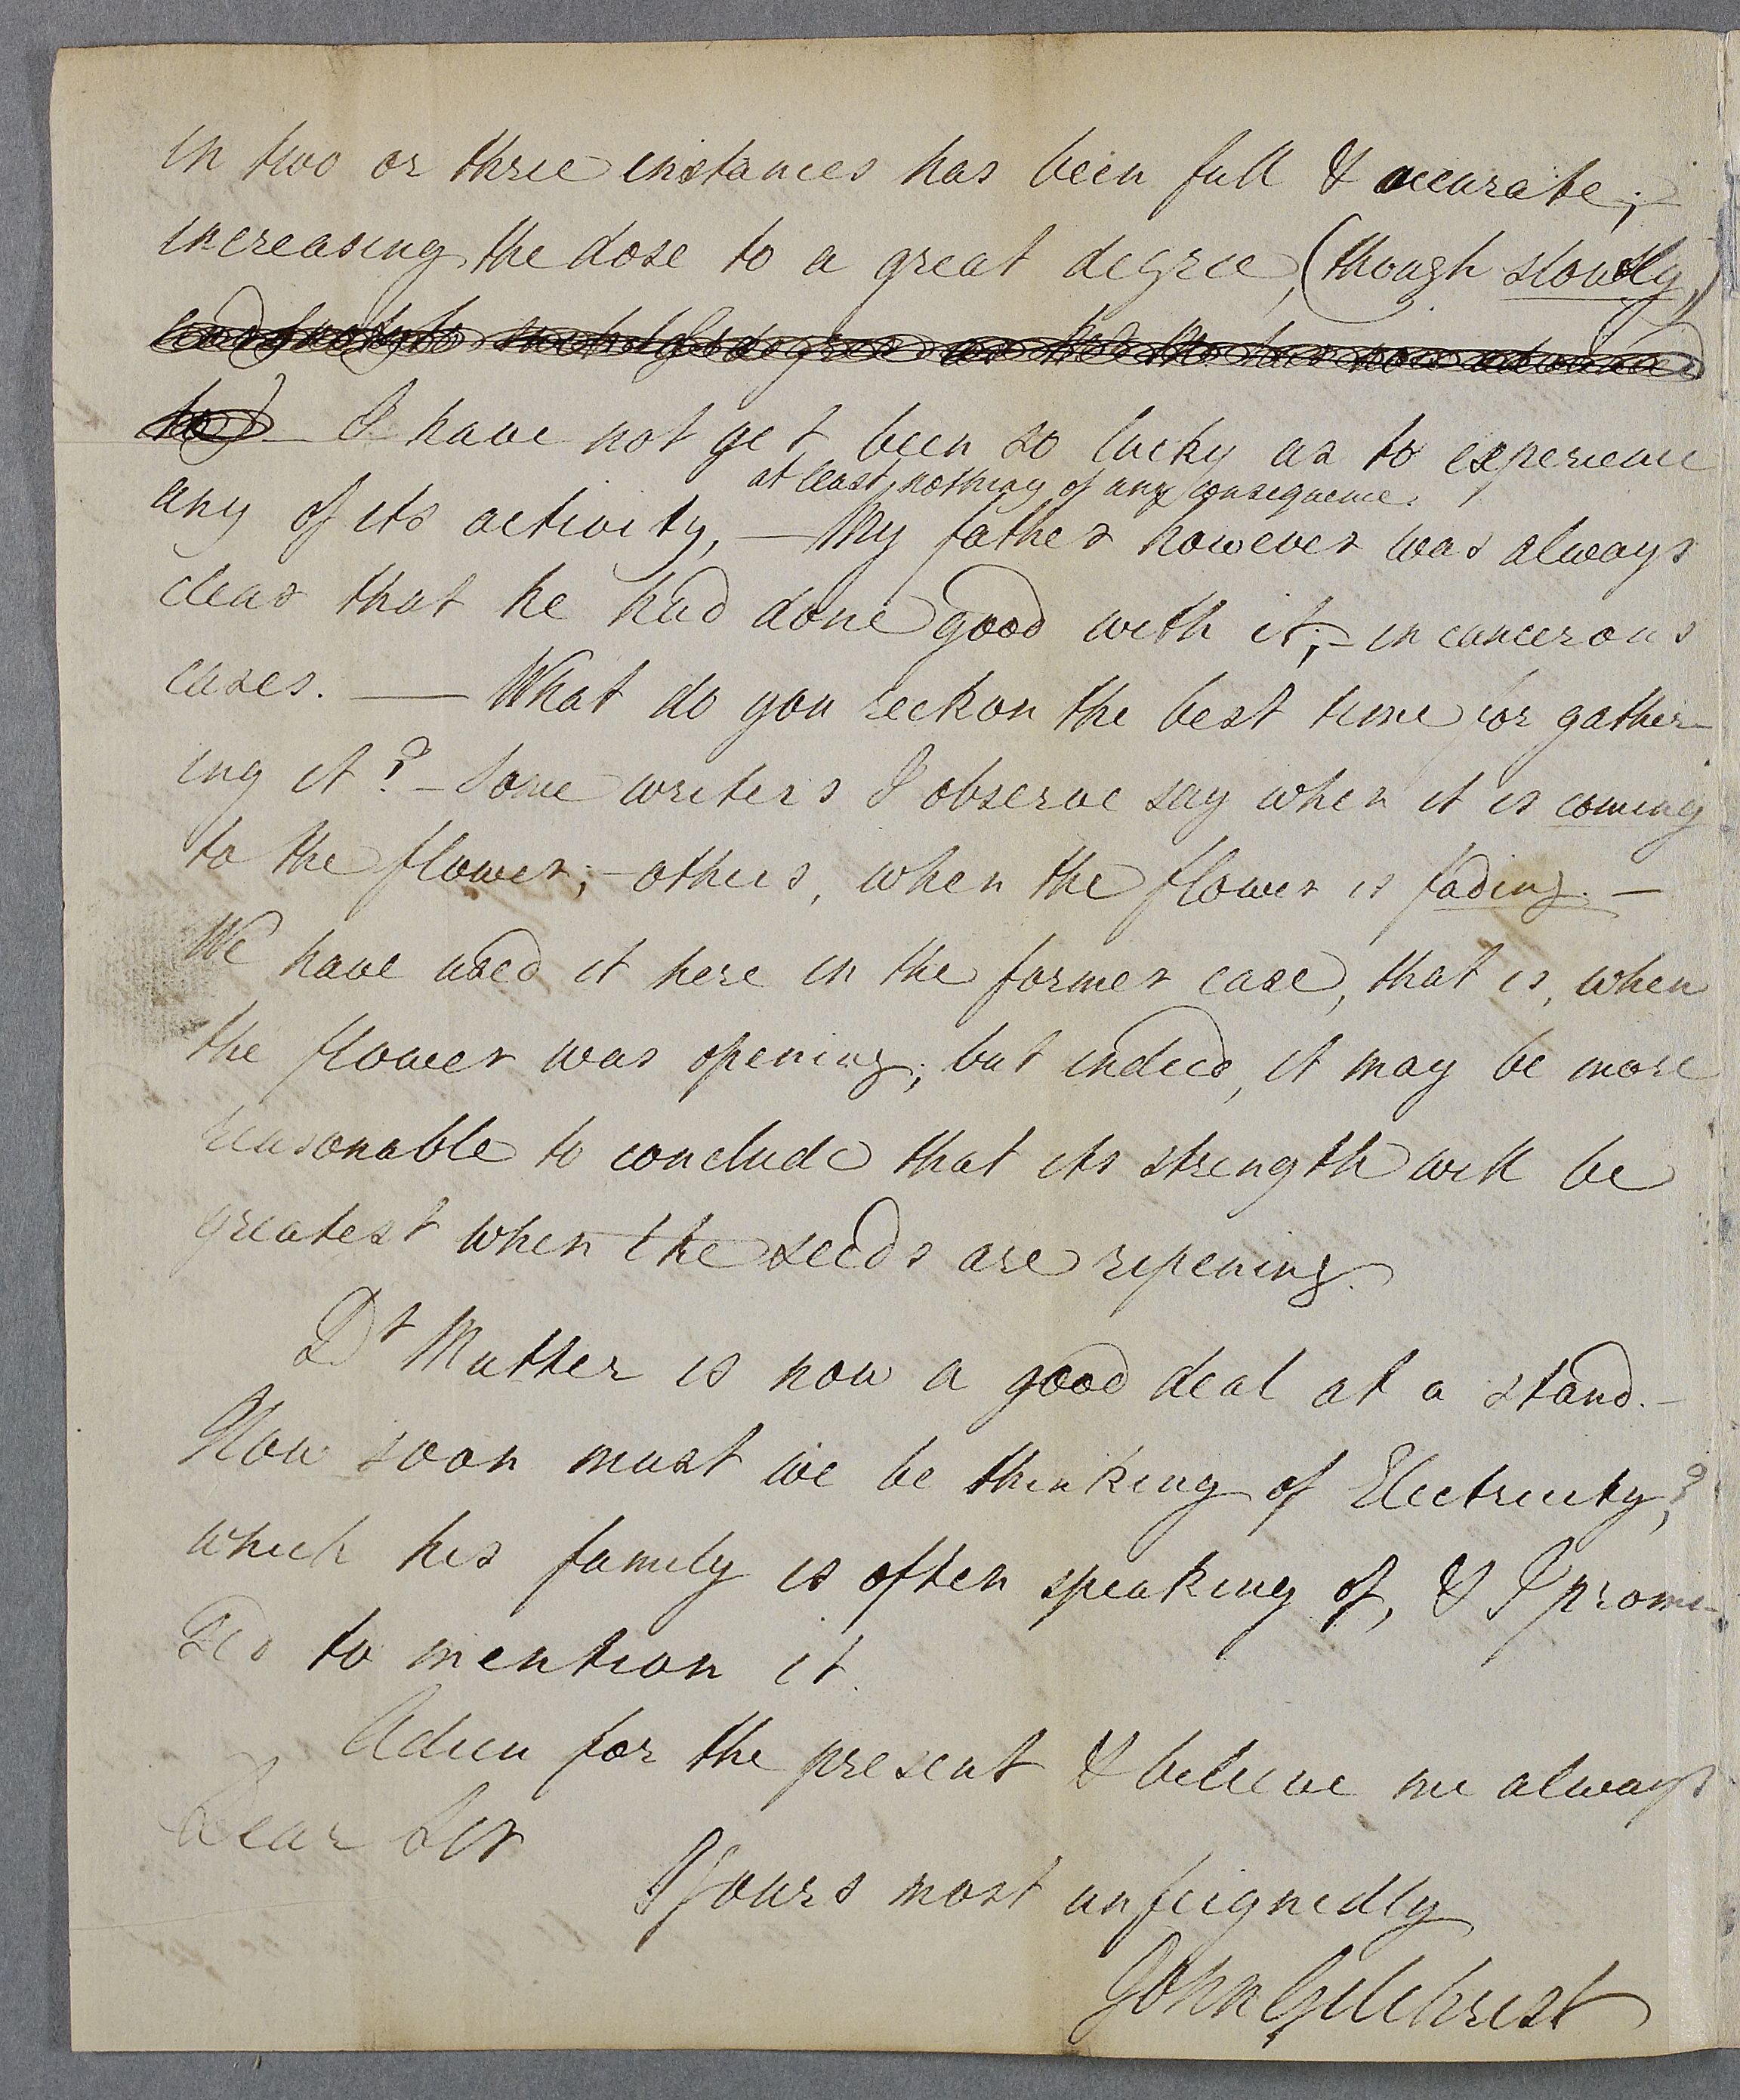 in two or three instances has been full & accurate;-
increasing the dose to a great degree, (though slowly,)
to) - I have not yet been so lucky as to experience
at least, nothing of any consequence.
any of its activity, - My father however was always
clear that he had done good with it;- in cancerous
cases. — What do you reckon the best time for gather-
ing it? - Some writers I observe say when it is coming
to the flower;- others, when the flower is fading. -
We have used it here in the former case, that is, when
the flower was opening; but indeed, it may be more
reasonable to conclude that its strength will be
greatest when the seeds are ripening.
Dr Mutter is now a good deal at a stand. -
How soon must we be thinking of Electricity,?
which his family is often speaking of, & I promi-
sed to mention it.
Adieu for the present & believe me always
Dear Sir
Yours most unfeignedly
John Gilchrist